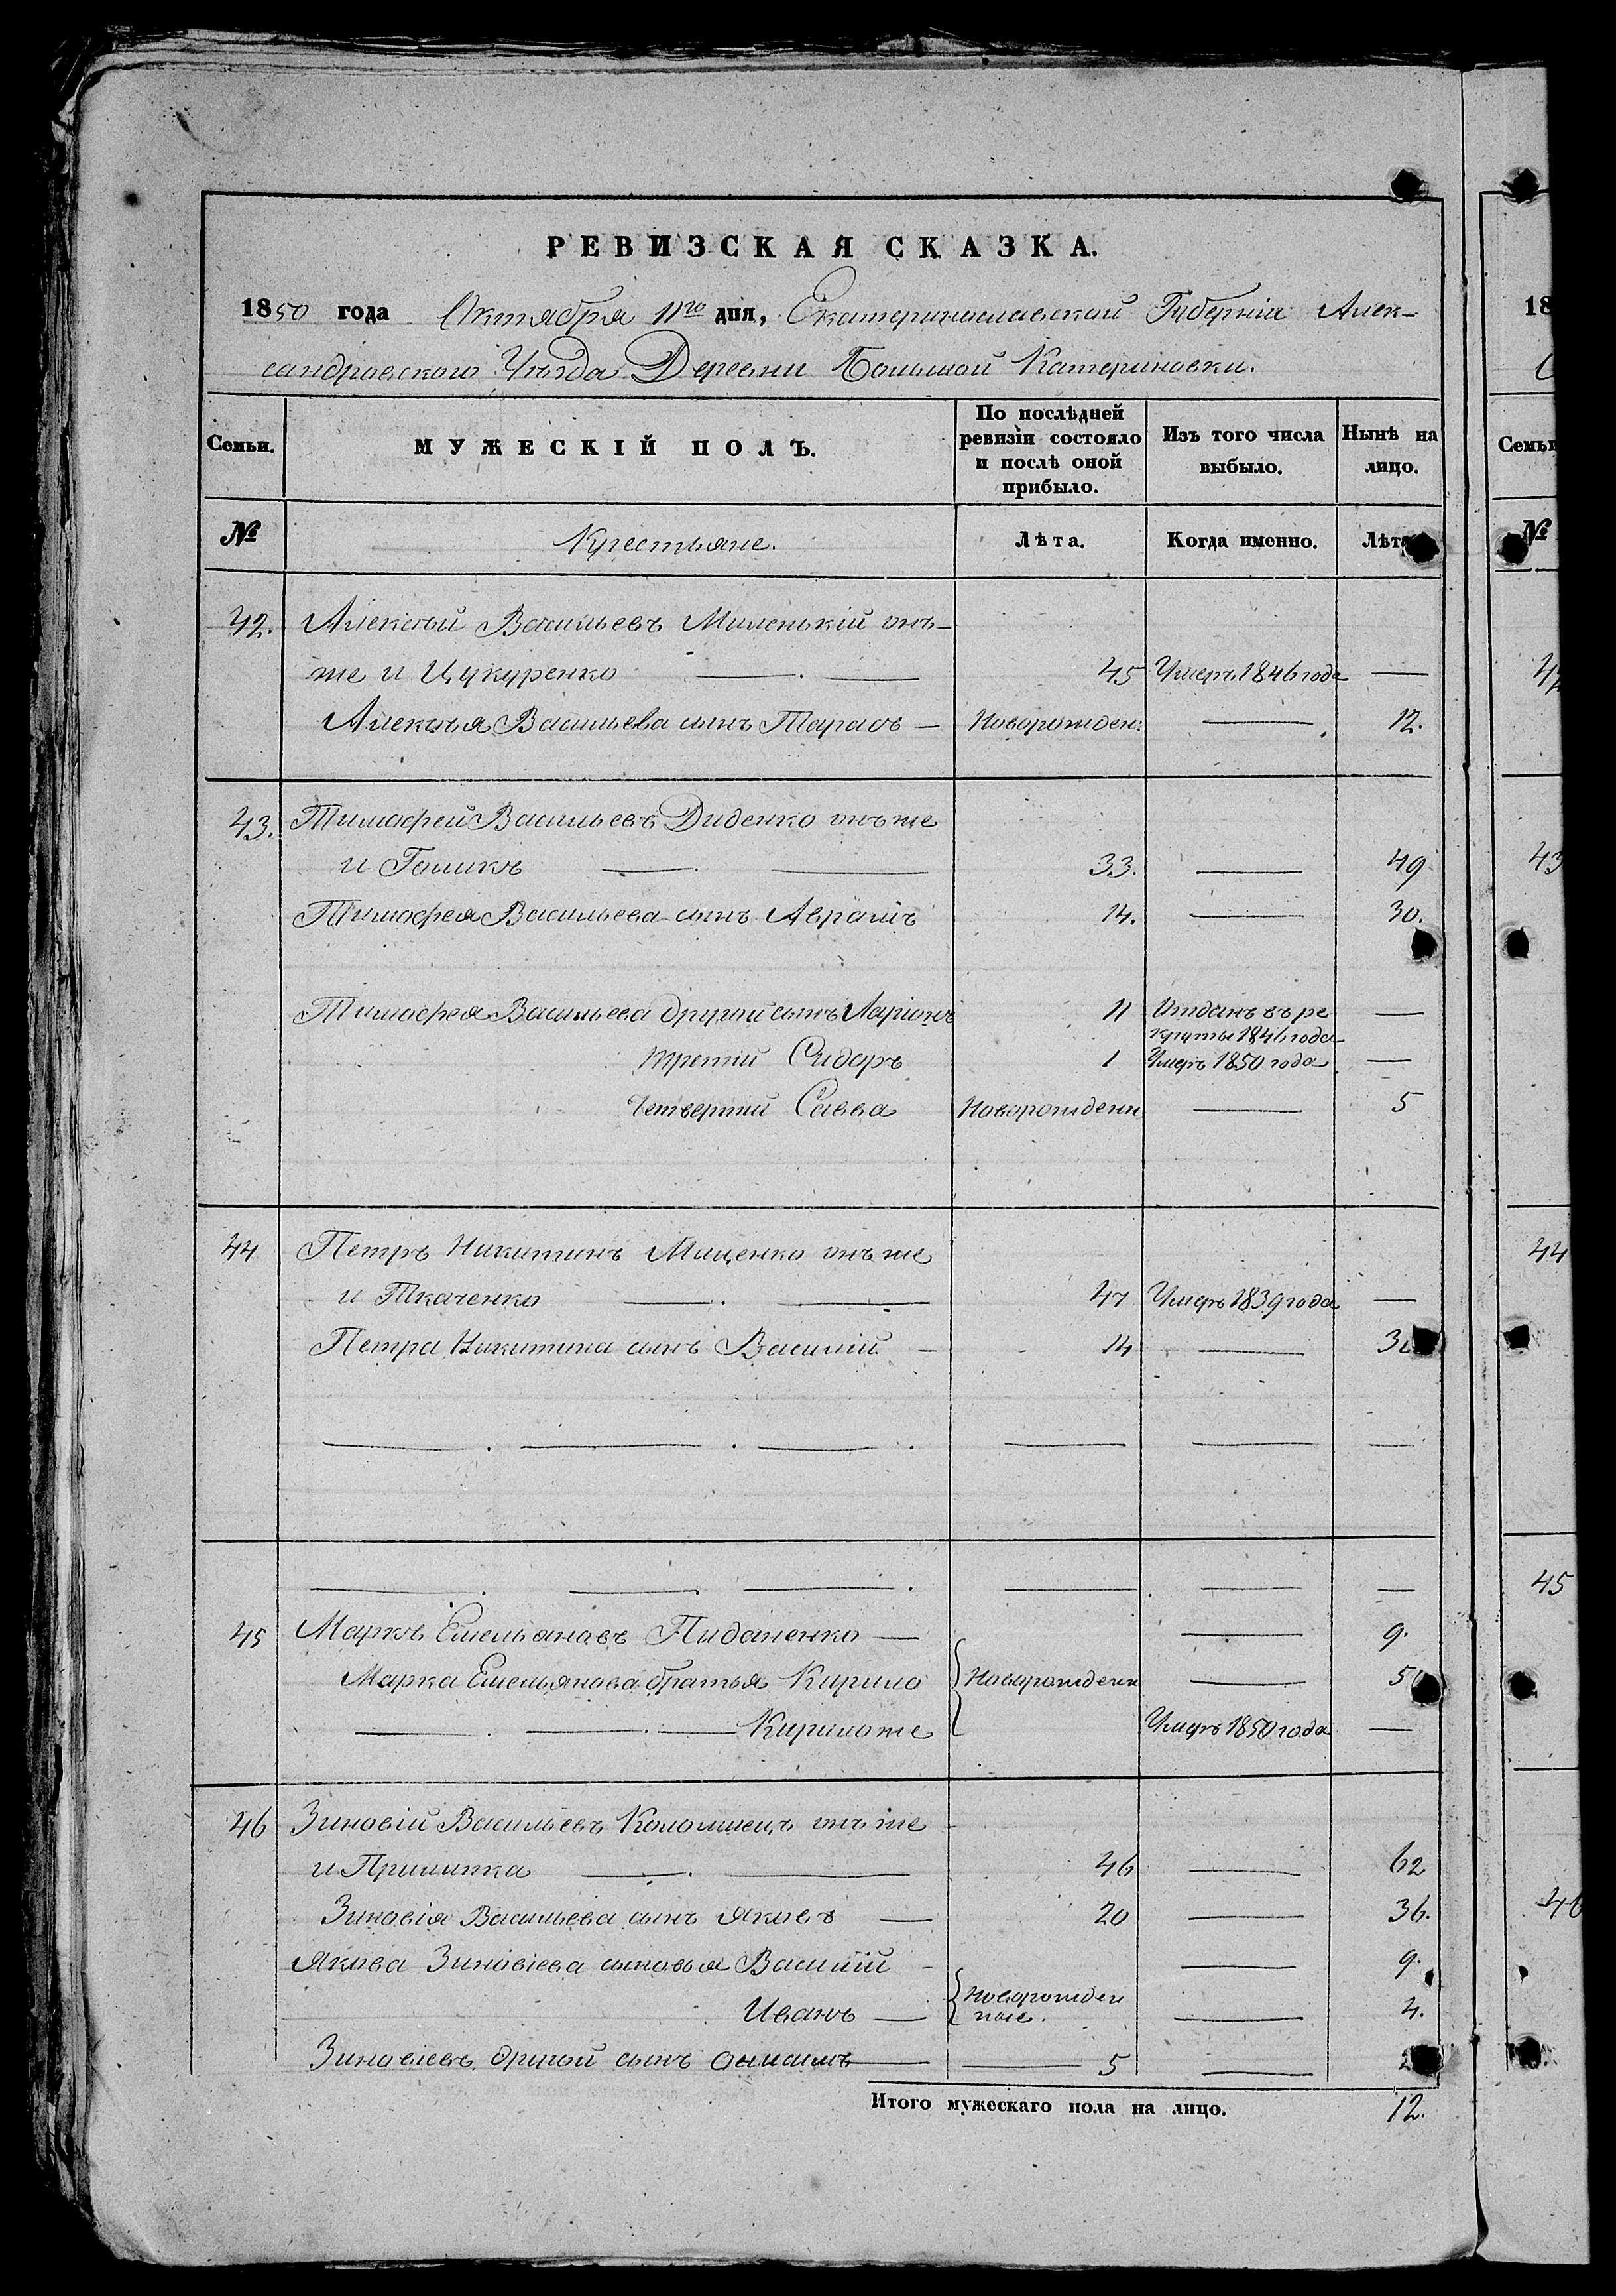 РЕВИЗСКАЯ СКАЗКА.
1850 года Октября 11го дня, Екатеринославской Губерніи Алек-
сандровского Уѣзда Деревни Большой Катериновки.
Семьи. МУЖЕСКІЙ ПОЛЪ. По послѣдней ревизіи состояло и послѣ оной прибыло. Изъ того числа выбыло. Нынѣ на лицо.
№ Крестьяне. Лѣта. Когда именно. Лѣта
42. Алексѣй Васильевъ Миленькій онъ-
же и Цукуренко 45 Умеръ 1846 года —
Алексѣя Васильева сынъ Тарасъ — Новорожден: — 12.
43. Тимофей Васильевъ Диденко онъ же
и Голикъ 33. — 49
Тимофея Васильева сынъ Аврамъ 14. — 30.
Тимофея Васильева другой сынъ Ларіонъ 11 Отданъ въ ре
круты 1846 года —
третій Сидоръ 1 Умеръ 1850 года —
Четвертый Савва Новорожденн — 5
44 Петръ Никитинъ Мищенко онъ же
и Ткаченко 47 Умеръ 1839 года —
Петра Никитина сынъ Василій — 14 — 3
45 Маркъ Емельяновъ Пиданенко — — 9.
Марка Емельянова братья Кирило Новорожденн — 5
Кирило же Умеръ 1850 года —
46 Зиновій Васильевъ Коломіецъ онъ же
и Прилипка 46 — 62
Зиновія Васильева сынъ Яковъ — 20 — 36.
Якова Зиновіева сыновья Василій — — 9.
Иванъ — Новорожден
ные. — 4.
Зиновіевъ другой сынъ — 5 — 2
Итого мужескаго пола на лицо. 12.
18
Семьи
№
42
43
44
45
46